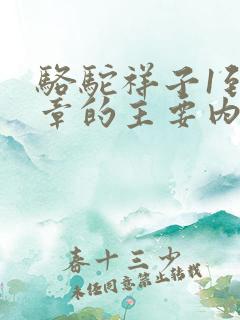 骆驼祥子1到
章的主要内
春十三少
未经同意禁止转载